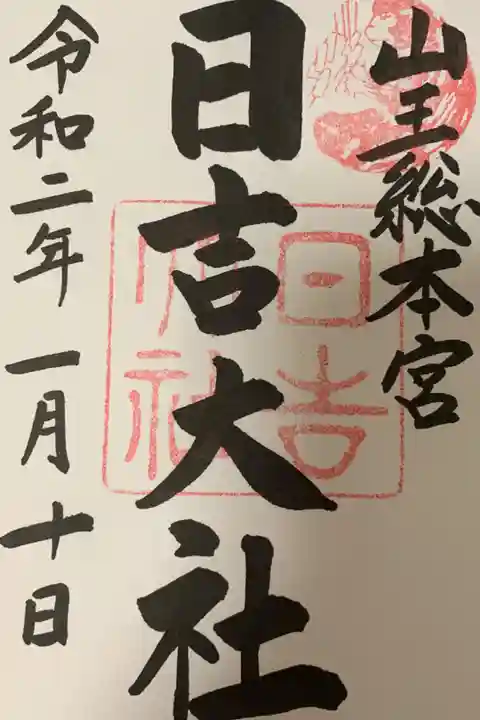 山王総本宮
日吉大社
日吉
大社
令和二年一月十日